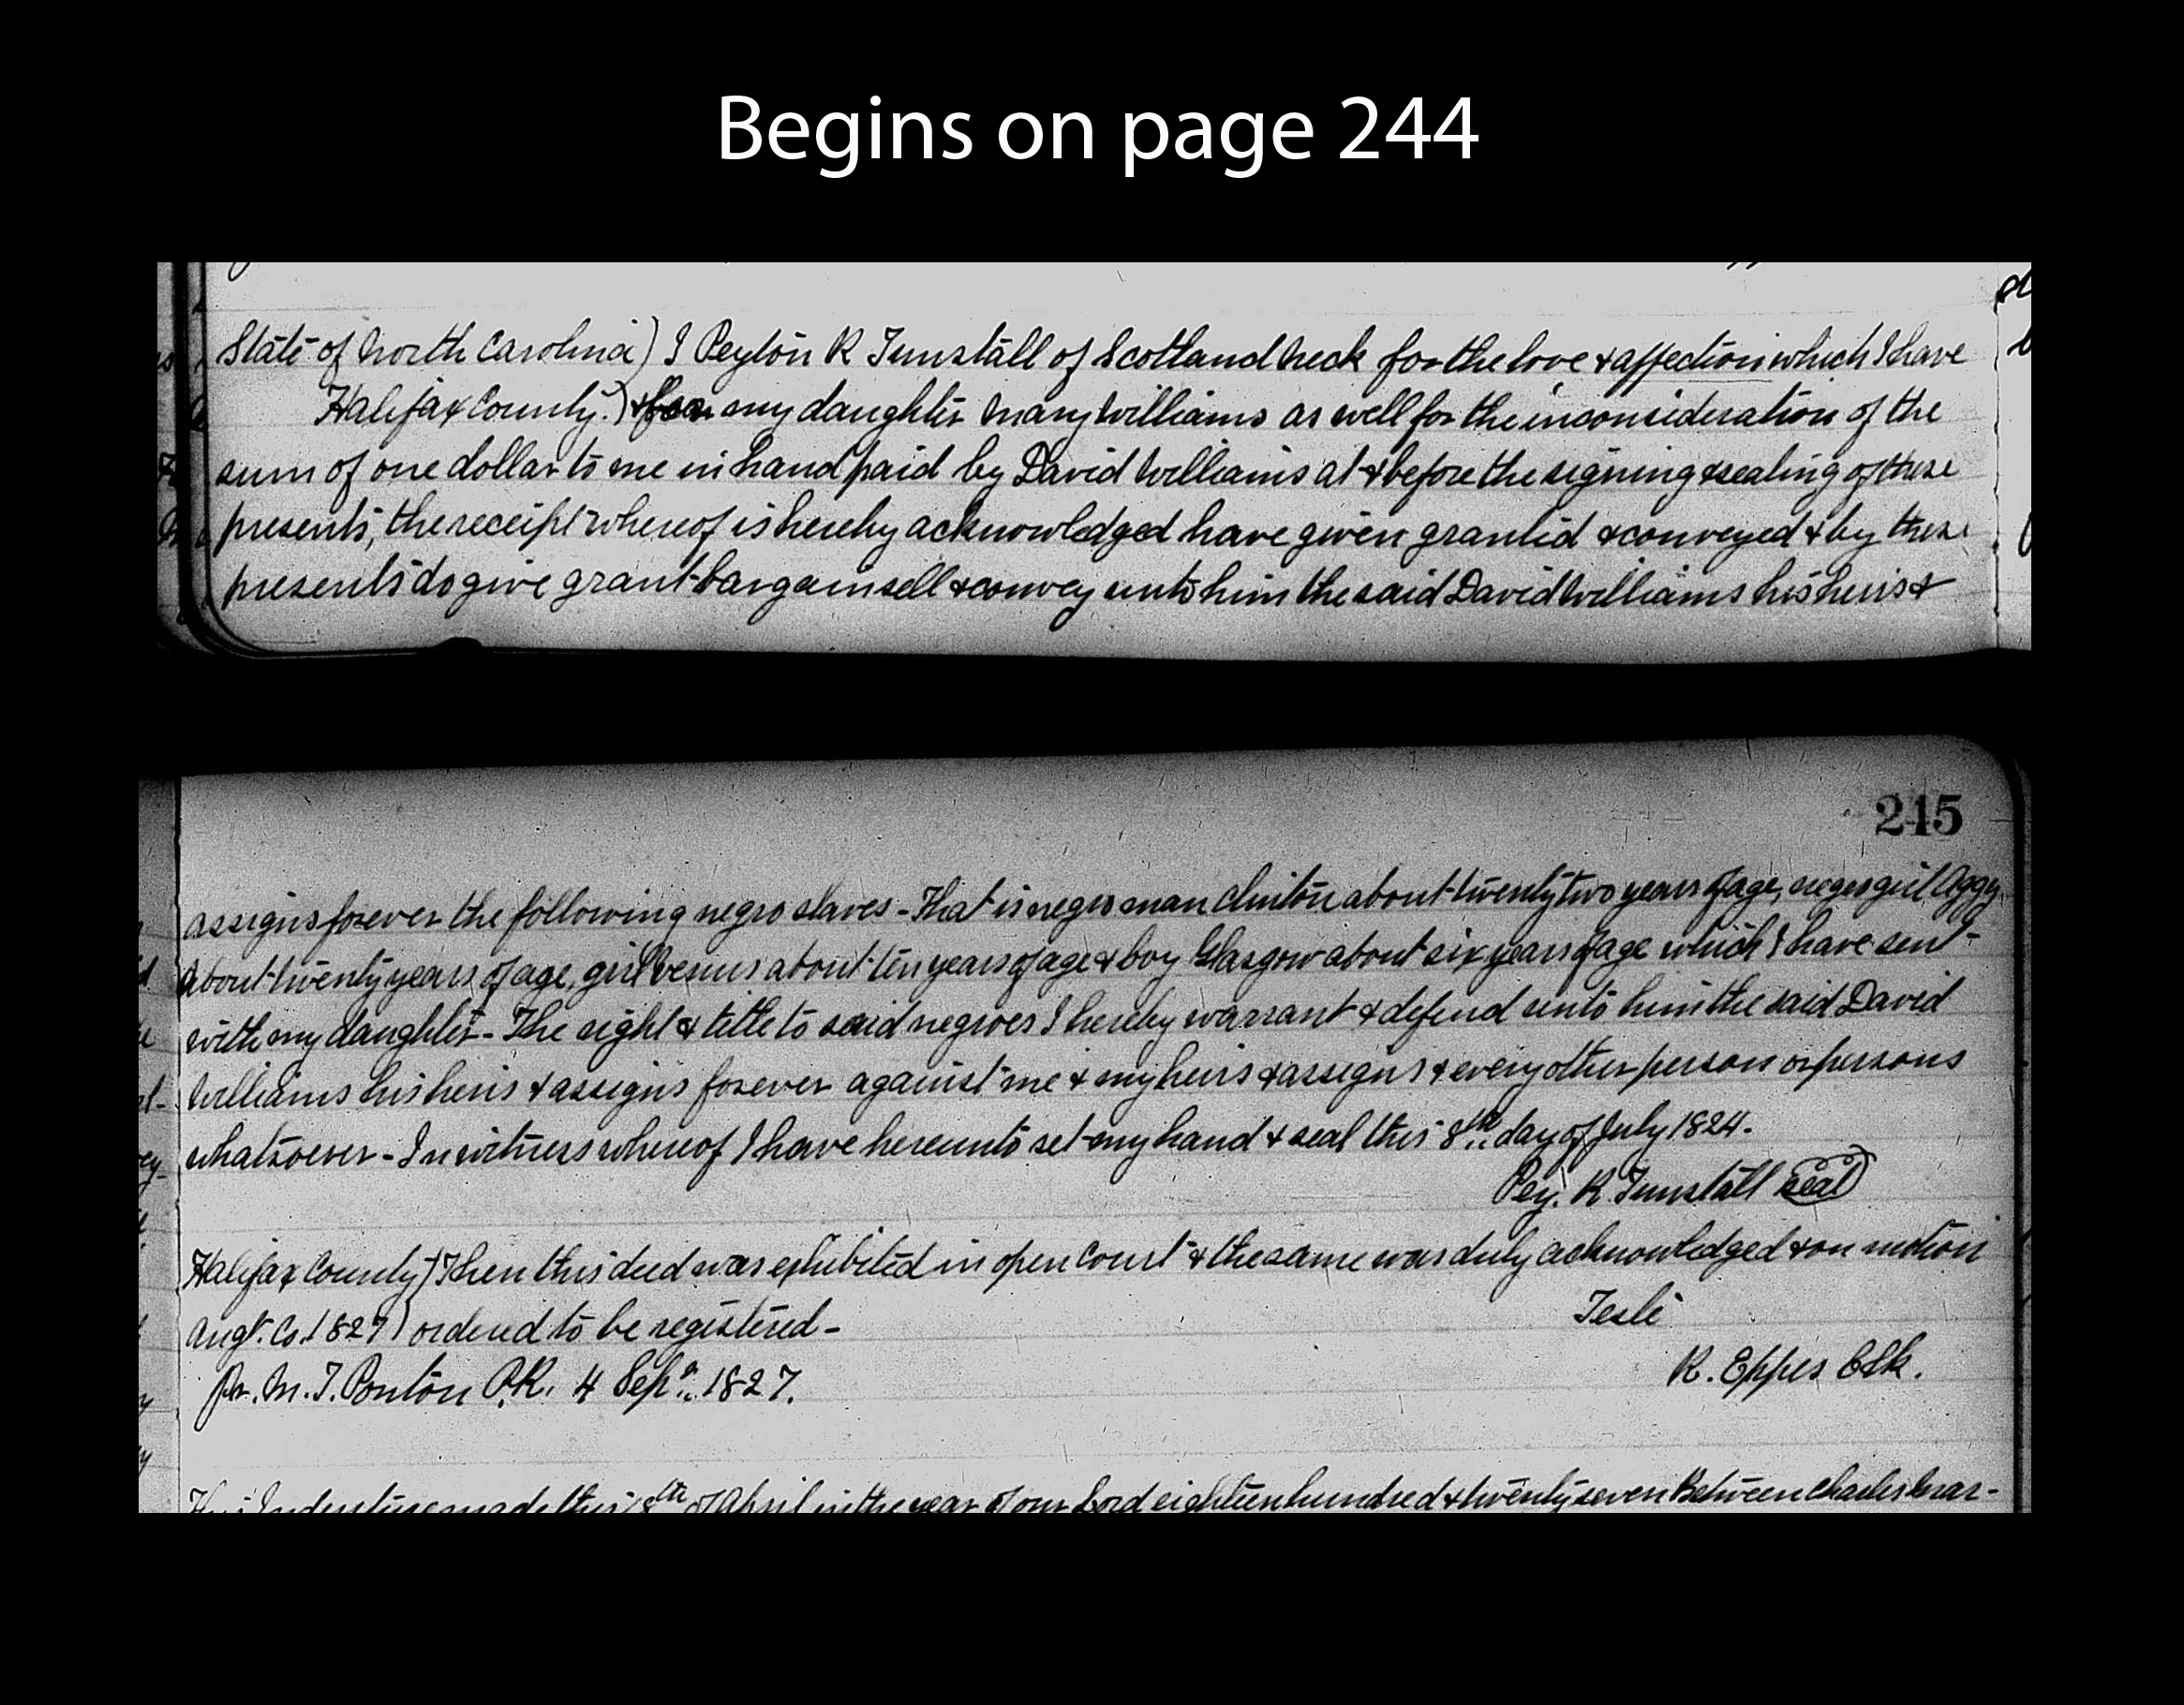 Begins on page 244
State of North Carolina) I Peyton R Tunstall of Scotland Neck for the love & affection which I have
Halifax County.) & for my daughter Mary Williams as well for the inconsideration of the
sum of one dollar to me in hand paid by David Williams at & before the signing & sealing of these
presents, the receipt whereof is hereby acknowledged have given granted & conveyed & by these
presents do give grant bargain sell & convey unto him the said David Williams his heirs &
245
assigns forever the following negro slaves - That is negro man Clinton about twenty two years of age, negro girl Aggy
about twenty years of age, girl Venus about ten years of age & boy Glasgow about six years of age which I have sent
with my daughter - The right & title to said negroes I hereby warrant & defend unto him the said David
Williams his heirs & assigns forever against me & my heirs & assigns & every other person or persons
whatsoever - In witness whereof I have hereunto set my hand & seal this 8th day of July 1824.
Pey. R Tunstall Seal
Halifax County) Then this deed was exhibited in open Court & the same was duly acknowledged & on motion
Augt. Co. 1827) ordered to be registered -
Teste
pr. M. T. Ponton P.R. 4 Sepr. 1827.
R. Eppes Clk.
This Indenture made this 8th of April in the year of our Lord eighteen hundred & twenty seven Between Charles